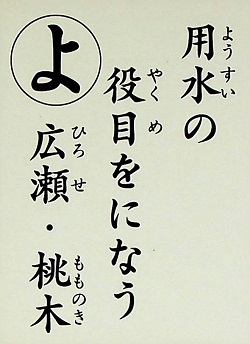 よ
用水の
役目をになう
広瀬・桃木
ようすい
やくめ
ひろせ
もものき